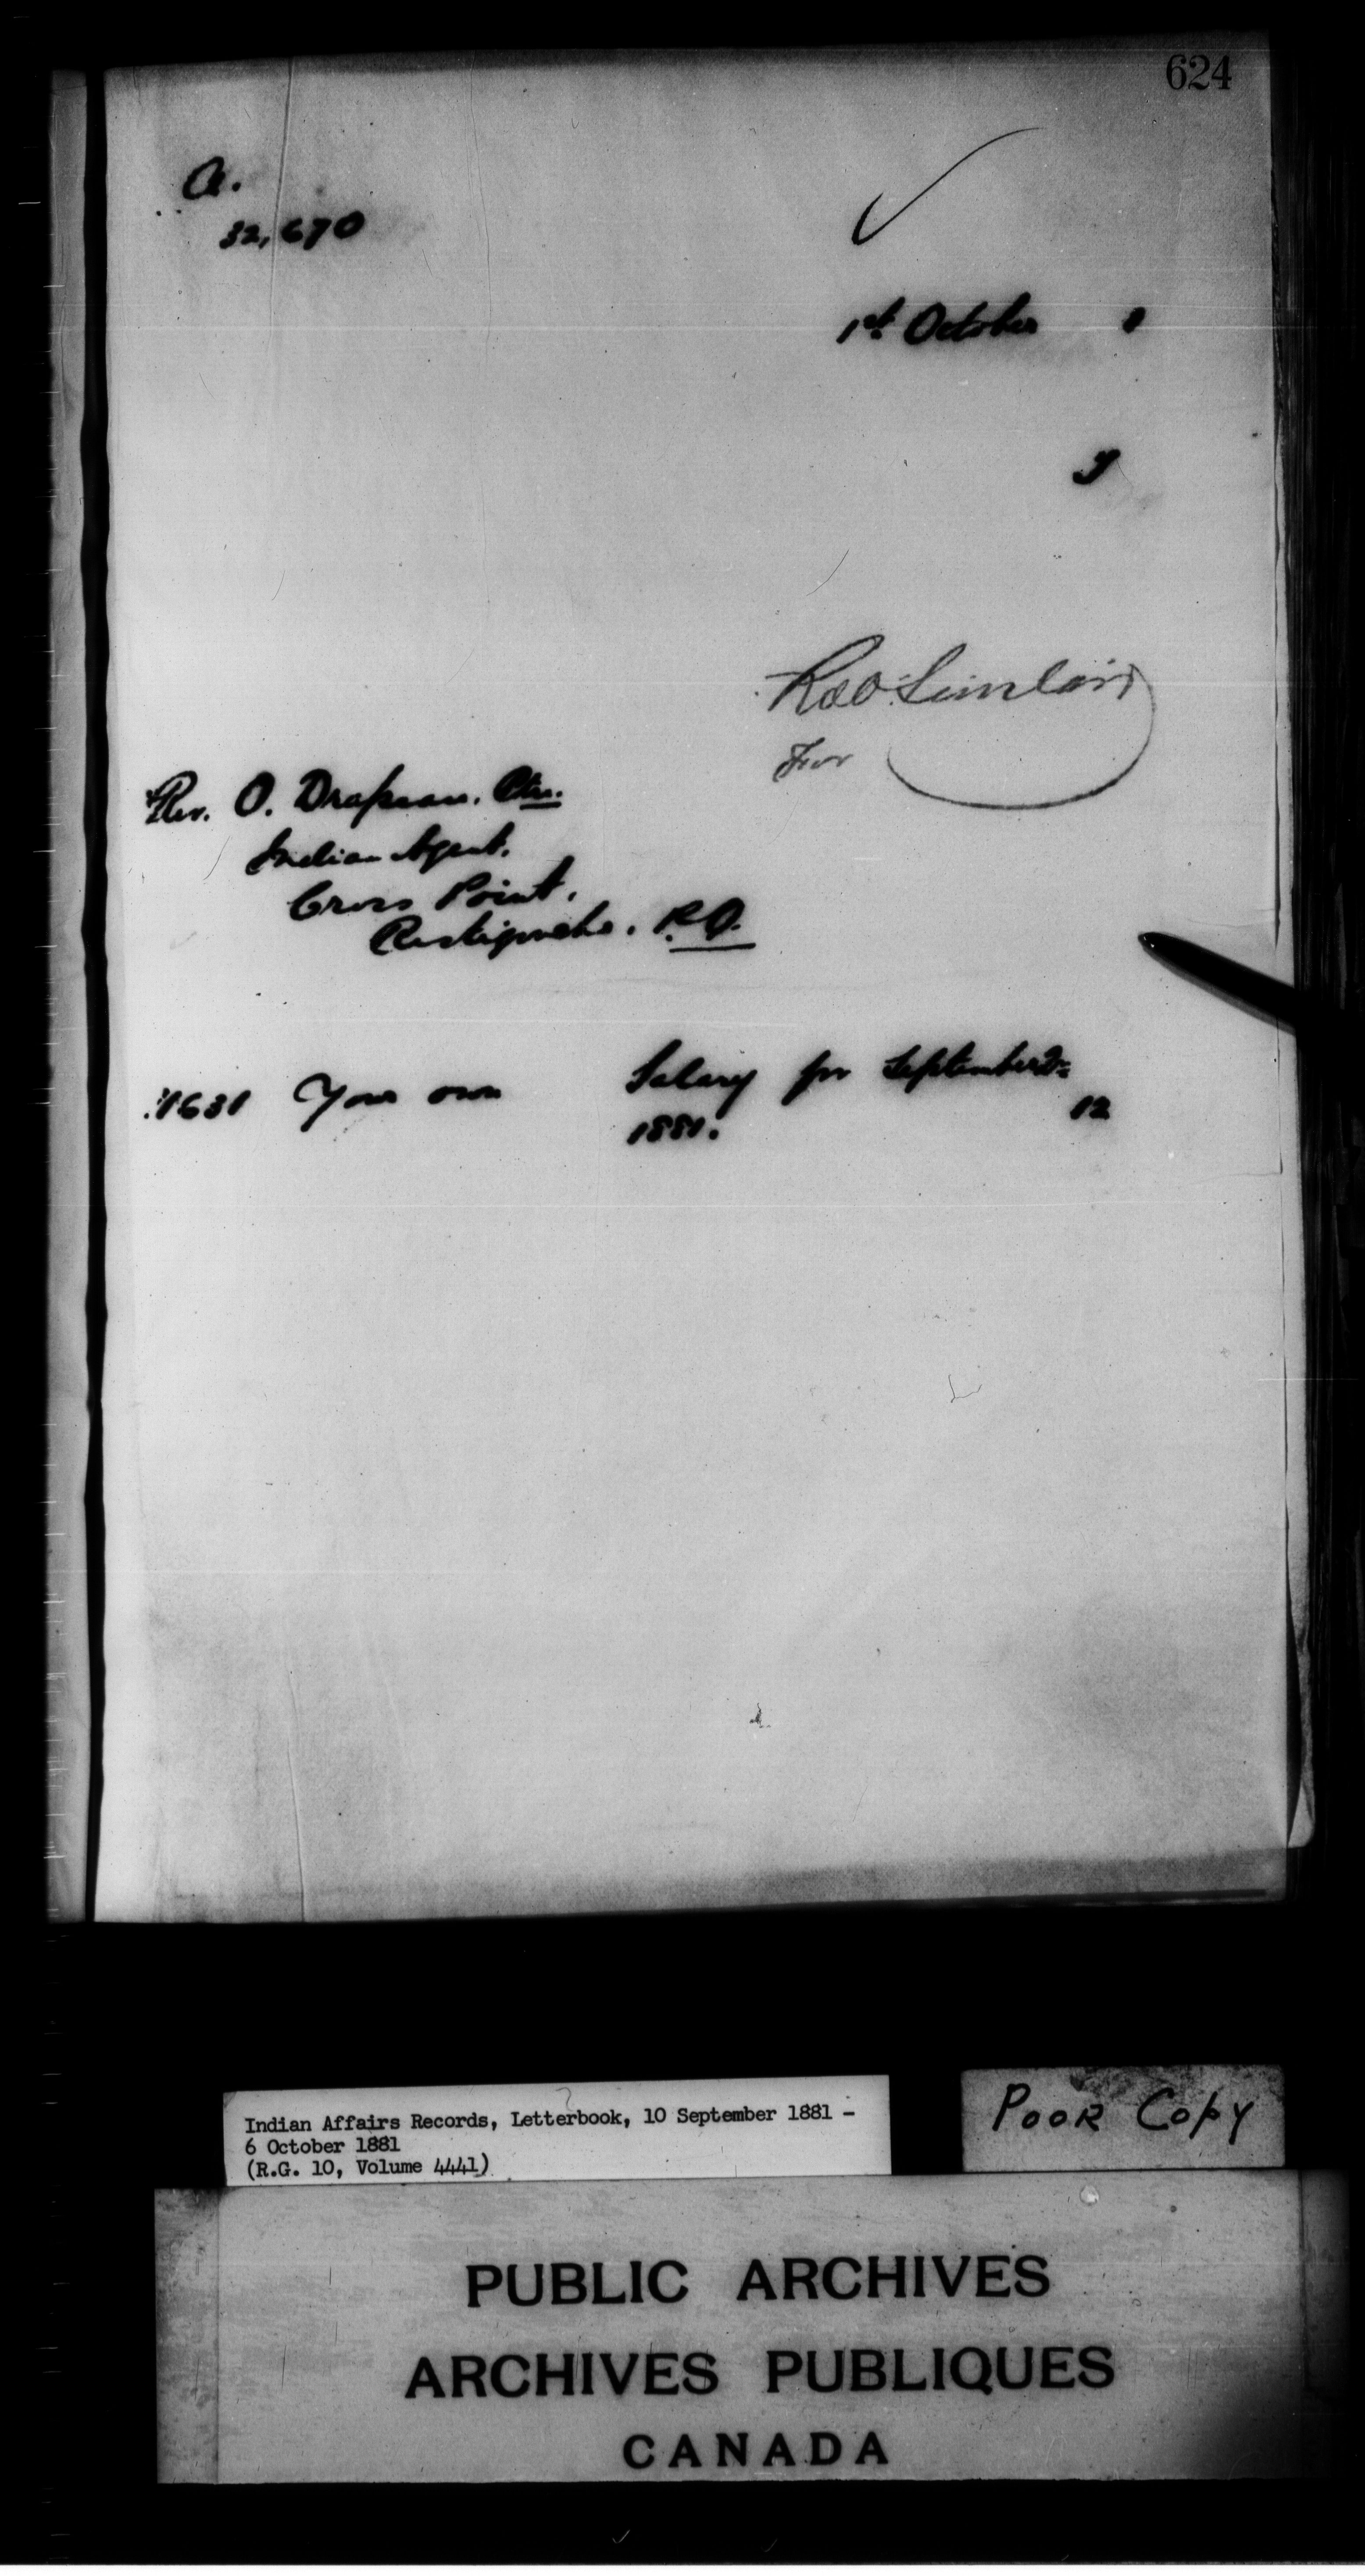 624
A.
32,670
1st October 1
y
Rob Sinclair
For
Rev. O. Drapeau. Ptr.
Indian Agent.
Cross Point,
Restigouche. P.Q.
1631 Your own Salary for September
1881. 12
Indian Affairs Records, Letterbook, 10 September 1881 -
6 October 1881
(R.G. 10, Volume 4441)
POOR COPY
PUBLIC ARCHIVES
ARCHIVES PUBLIQUES
CANADA